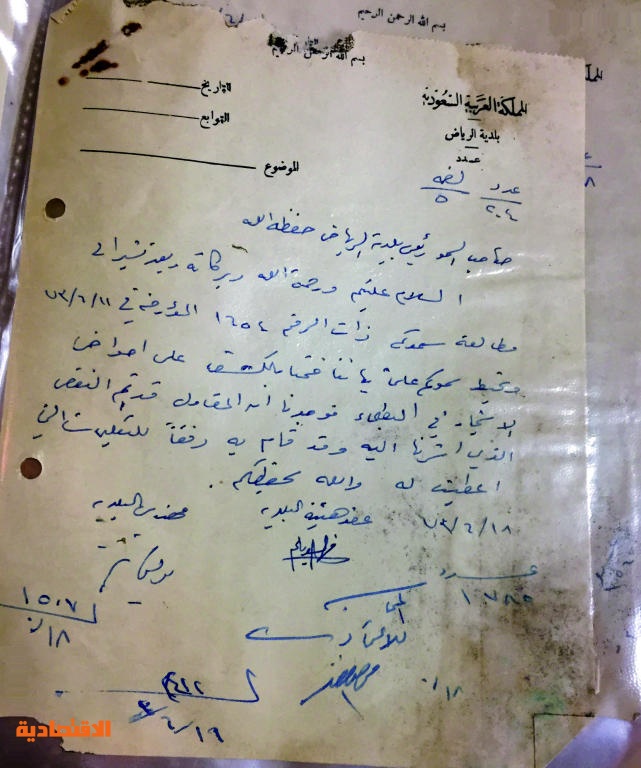 بسم الله الرحمن الرحيم
بسم الله الرحمن الرحيم
المملكة العربية السعودية
بلدية الرياض
عدد
التاريخ
التوابع
الموضوع
عدد
٢٠٤
٥
صاحب السمو رئيس بلدية الرياض حفظه الله
السلام عليكم ورحمة الله وبركاته وبعد نشير الى
مطالعة سموكم ذات الرقم ١٦٥٤ المؤرخة في ٧٣/٦/١١
ونحيط سموكم علما باننا قمنا بالكشف على احواض
الاشجار في البطحاء فوجدنا ان المقاول قد تمم النقص
الذي اشرنا اليه وقد قام به وفقا للتعليمات التي
اعطيت له والله يحفظكم
عضو هيئة البلدية
٧٣/٦/١٨
عدد
١٥٠٧
١٨
١٨
الاقتصادية